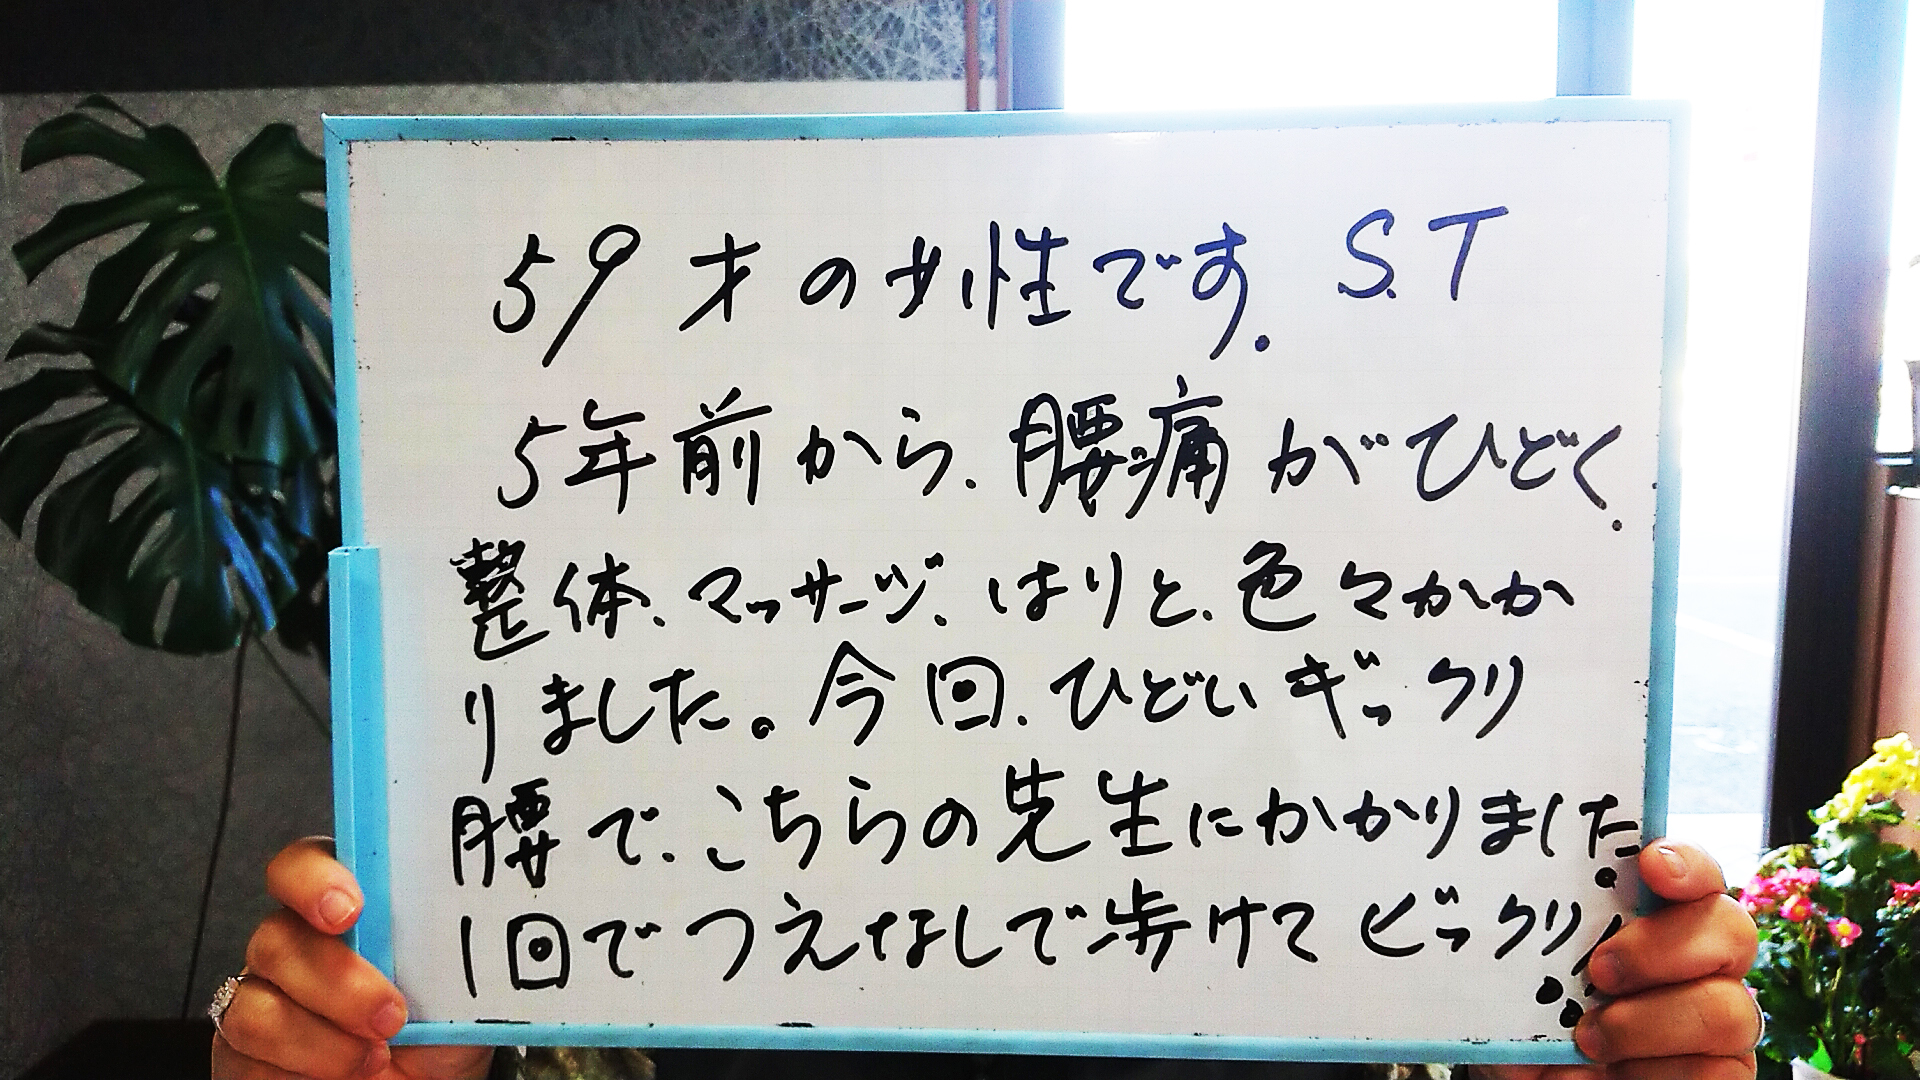 59才の女性です. S.T
5年前から、腰痛がひどく、
整体、マッサージ、はりと、色々かか
りました。今回、ひどいギックリ
腰で、こちらの先生にかかりました。
1回でつえなしで歩けてビックリ!!